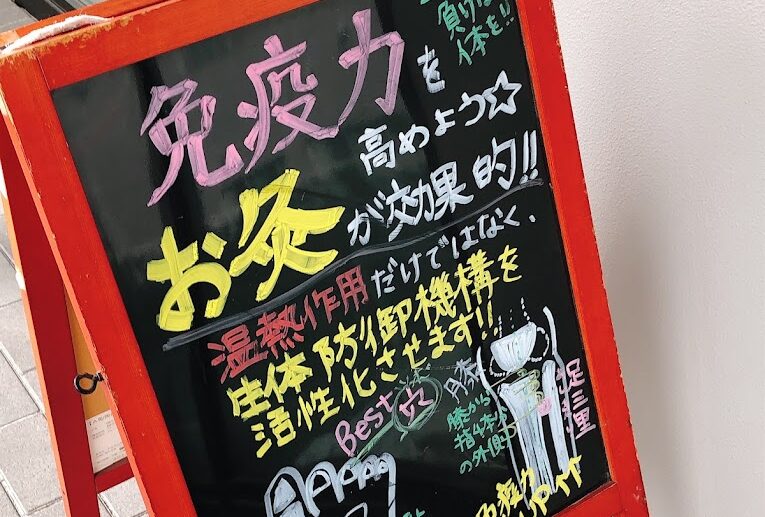 負けない
体を!!
免疫力を
高めよう☆
お灸が効果的!!
温熱作用だけではなく、
生体防御機構を
活性化させます!!
Best
穴
膝から
指4本分
の外側
足三里
免疫力
UP